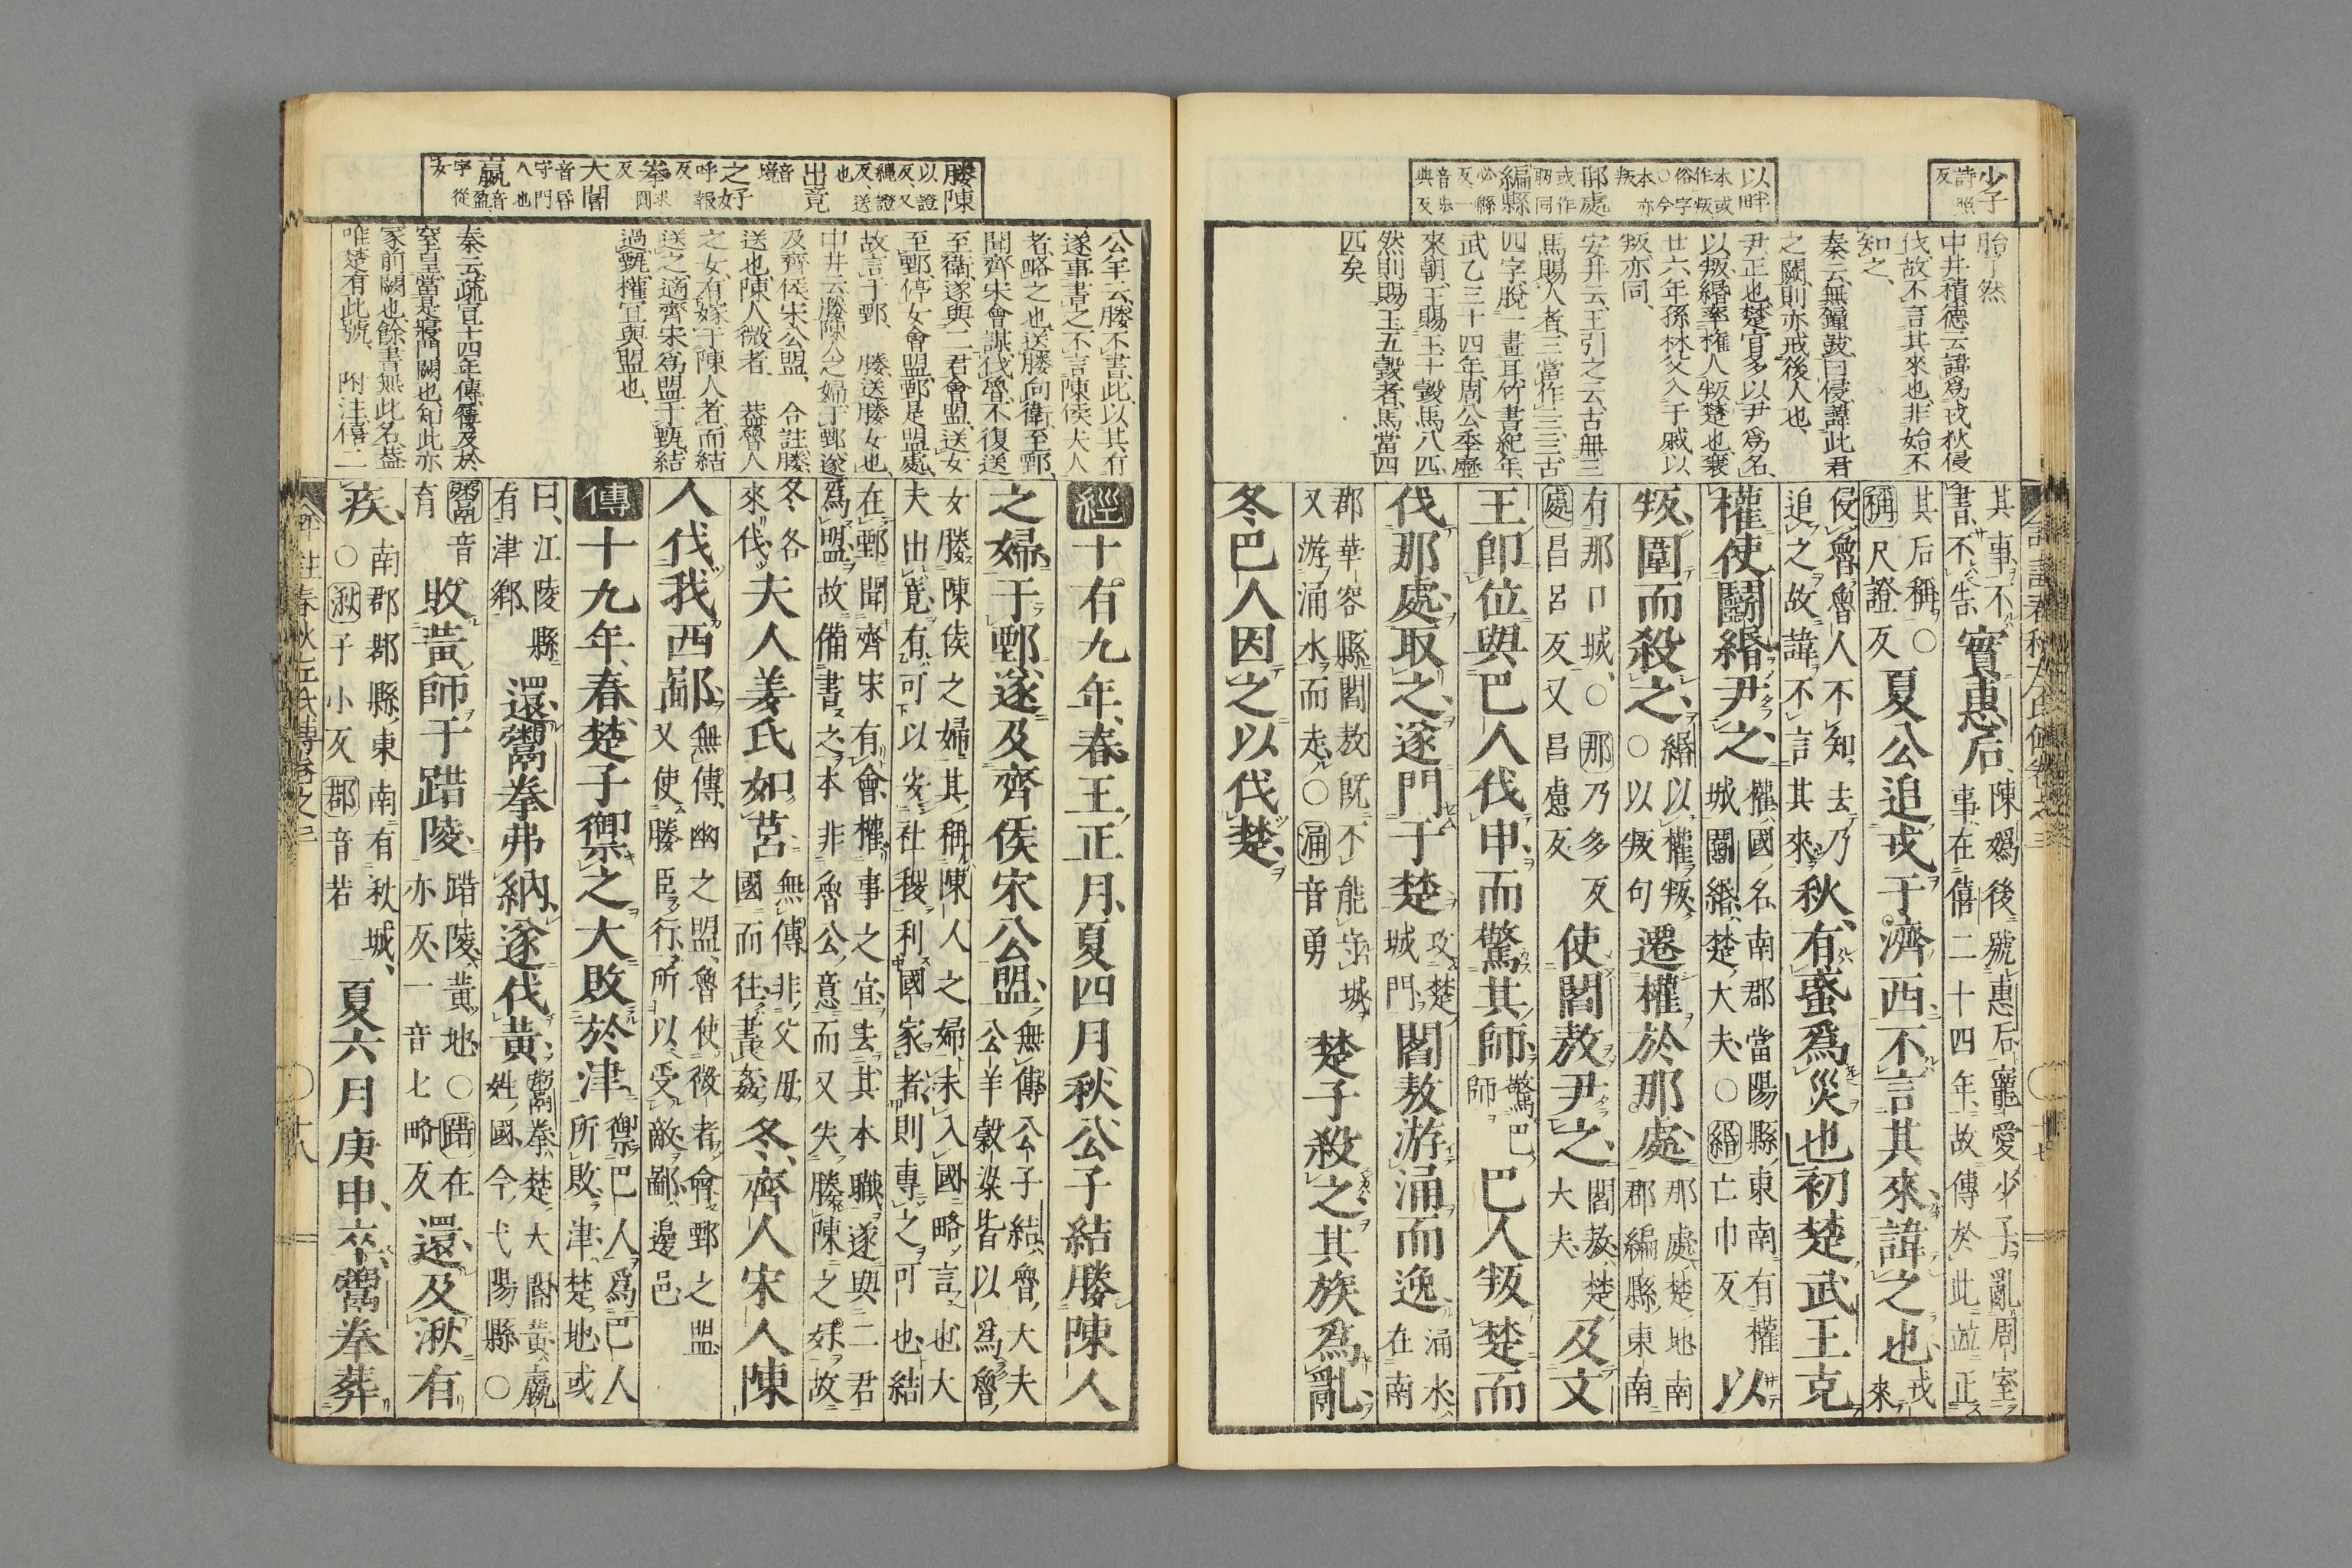 少子詩照反
以畔本或作叛俗字○今本亦叛
那處或作䎠同
編縣必縣反一音步典反
胎了然
中井積德云諱爲戎狄侵
伐、故不言其來也、非始不
知之、
秦云無鐘鼓曰侵、諱此君
之闕、則亦戒後人也、
尹正也、楚官多以尹爲名、
以叛、緡率權人叛楚也、襄
廿六年孫林父入于戚以
叛亦同、
安井云、王引之云、古無三
馬賜人者、三當作亖、亖古
四字、脫一畫耳、竹書紀年、
武乙三十四年、周公季歷
來朝、王賜玉十瑴馬八匹、
然則賜玉五瑴者、馬當四
匹矣
其事不書、不告實惠后、陳嬀後號惠后寵愛少子亂周室事在僖二十四年、故傳於此竝正
其后稱○稱尺證反夏公追戎于濟西、不言其來、諱之也、戎來
侵魯魯人不知、去乃追之故諱不言其來秋、有蜮爲災也初楚武王克
權使鬭緡尹之、權國名南郡當陽縣東南有權城鬭緡楚大夫○緡亡巾反以
叛、圍而殺之、緡以權叛○以叛句遷權於那處、那處楚地南郡編縣東南
有那口城、○那乃多反處昌呂反又昌慮反使閻敖尹之、閻敖楚大夫、及文
王卽位與巴人伐申而驚其師驚巴師巴人叛楚而
伐那處取之、遂門于楚攻楚城門閻敖游涌而逸涌水在南
郡華容縣閻敖旣不能守城又游涌水而走○涌音勇楚子殺之其族爲亂
冬巴人因之以伐楚
媵陳以證反、又繩證反、送也
出竟音境
之好呼報反
拳求圓反
大閽音昏守門人也
嬴音盈字從女
公羊云媵不書、此以其有
遂事書之、不言陳侯夫人
者、略之也、送媵向衛、至鄄、
聞齊宋會謀伐魯、不復送
至衛、遂與二君會盟、送女
至鄄、停女會盟、鄄是盟處、
故言于鄄、 媵、送媵女也、
中井云媵陳人之婦于鄄遂
及齊侯宋公盟、 合註、媵、
送也、陳人微者 葢魯人
之女、有嫁于陳人者、而結
送之、適齊宋爲盟于甄、結
過甄、權宜與盟也、
秦云、疏、宣十四年傳屨及於
窒皇當是寢門闕也、知此亦
冢前闕也、餘書無此名、葢
唯楚有此號、 附注、僖二
經十有九年春王正月夏四月秋公子結媵陳人
之婦于鄄遂及齊侯宋公盟、無傳公子結魯大夫公羊穀梁皆以爲魯
女媵陳侯之婦其稱陳人之婦未入國略言也大夫出竟有可以安社稷利國家者則專之可也結
在鄄聞齊宋有會權事之宜去其本職遂與二君爲盟故備書之本非魯公意而又失媵陳之好故
冬各來伐夫人姜氏如莒無傳非父母國而往書姦冬齊人宋人陳
人伐我西鄙無傳幽之盟魯使微者會鄄之盟又使媵臣行所以受敵鄙邊邑
傳十九年春楚子禦之大敗於津禦巴人爲巴人所敗津楚地或
曰、江陵縣有津鄕、還鬻拳弗納遂伐黃鬻拳楚大閽黃嬴姓國今弋陽縣○
鬻音育敗黃師于踖陵踖陵黃地○踖在亦反、一音七略反還及湫有
疾、南郡鄀縣東南有湫城、○湫子小反鄀音若夏六月庚申卒鬻拳葬